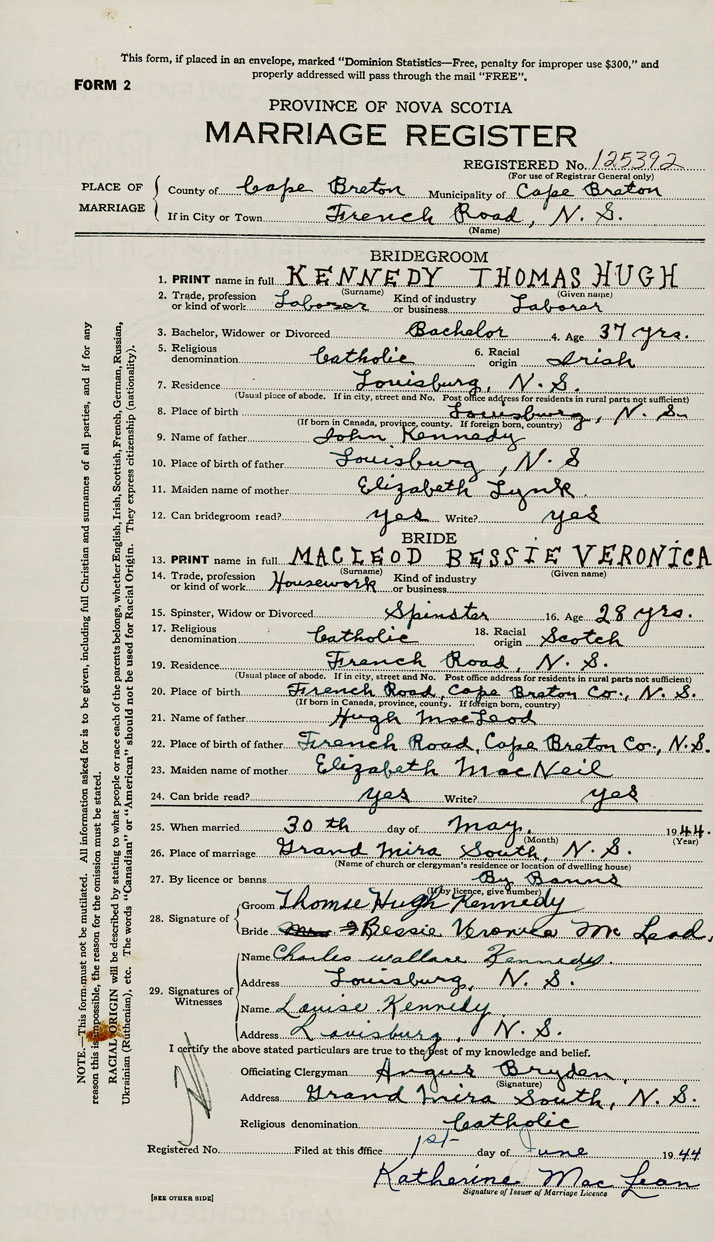 This form, if placed in an envelope, marked "Dominion Statistics—Free, penalty for improper use $300," and
properly addressed will pass through the mail "FREE".
FORM 2
PROVINCE OF NOVA SCOTIA
MARRIAGE REGISTER
REGISTERED No. 125392
(For use of Registrar General only)
PLACE OF MARRIAGE
County of Cape Breton Municipality of Cape Breton
If in City or Town French Road, N. S.
(Name)
BRIDEGROOM
1. PRINT name in full KENNEDY THOMAS HUGH
(Surname) (Given name)
2. Trade, profession or kind of work Laborer Kind of industry or business Laborer
3. Bachelor, Widower or Divorced Bachelor 4. Age 37 yrs.
5. Religious denomination Catholic 6. Racial origin Irish
7. Residence Louisburg, N. S.
(Usual place of abode. If in city, street and No. Post office address for residents in rural parts not sufficient)
8. Place of birth Louisburg, N. S.
(If born in Canada, province, county. If foreign born, country)
9. Name of father John Kennedy
10. Place of birth of father Louisburg, N. S
11. Maiden name of mother Elizabeth Lynk
12. Can bridegroom read? yes Write? yes
BRIDE
13. PRINT name in full MACLEOD BESSIE VERONICA
(Surname) (Given name)
14. Trade, profession or kind of work Housework Kind of industry or business
15. Spinster, Widow or Divorced Spinster 16. Age 28 yrs.
17. Religious denomination Catholic 18. Racial origin Scotch
19. Residence French Road, N. S.
(Usual place of abode. If in city, street and No. Post office address for residents in rural parts not sufficient)
20. Place of birth French Road, Cape Breton Co., N. S.
(If born in Canada, province, county. If foreign born, country)
21. Name of father Hugh MacLeod
22. Place of birth of father French Road, Cape Breton Co., N.S.
23. Maiden name of mother Elizabeth MacNeil
24. Can bride read? yes Write? yes
25. When married 30 th day of May, 1944.
(Month) (Year)
26. Place of marriage Grand Mira South, N. S.
(Name of church or clergyman's residence or location of dwelling house)
27. By licence or banns By Banns
(If by licence, give number)
28. Signature of
Groom Thomse Hugh Kennedy
Bride Bessie Veronica Mc Leod,
29. Signatures of Witnesses
Name Charles Wallace Kennedy.
Address Louisburg, N. S.
Name Louise Kennedy
Address Louisburg, N. S.
I certify the above stated particulars are true to the best of my knowledge and belief.
Officiating Clergyman Angus Bryden,
(Signature)
Address Grand Mira South, N. S.
Religious denomination Catholic
Registered No. Filed at this office 1st day of June 1944
Katherine Mac Lean
Signature of Issuer of Marriage Licence
[SEE OTHER SIDE]
NOTE.—This form must not be mutilated. All information asked for is to be given, including full Christian and surnames of all parties, and if for any
reason this is impossible, the reason for the omission must be stated.
RACIAL ORIGIN will be described by stating to what people or race each of the parents belongs, whether English, Irish, Scottish, French, German, Russian,
Ukrainian (Ruthenian), etc. The words "Canadian" or "American" should not be used for Racial Origin. They express citizenship (nationality).